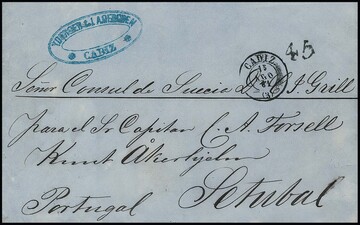 CADIZ
CADIZ
15
45
Señor Consul de Suecia D. J. Grill
para el Sr Capitan C. A. Forsell
Knut Åkerhjelm
Portugal Setubal